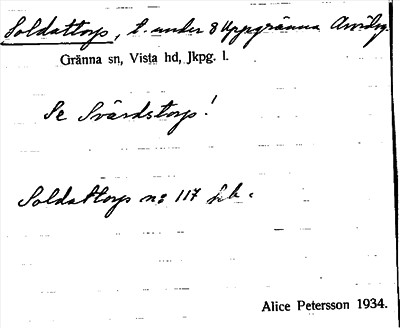 Soldattorp, t. under 8 Uppgränna
Gränna sn, Vista hd, Jkpg. l.
Se Svärdstorp!
Soldattorp no 117
Alice Petersson 1934.